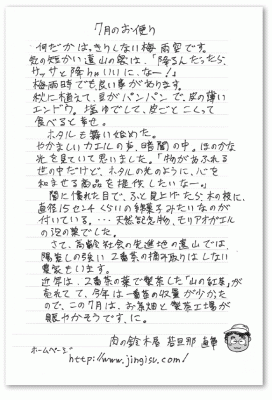 7月のお便り
何だかはっきりしない梅雨空です。
気の短かい遠山の衆は、「降るんだったら、
サッサと降りゃいいに、なー！」
梅雨時でも良い事があります。
秋に植えて、豆がパンパンで、皮の薄い
エンドウ。塩ゆでして、皮ごとこくって
食べると幸せ。
ホタルも舞い始めた。
やかましいカエルの声、暗闇の中、ほのかな
光を見ていて思いました。「物があふれる
世の中だけど、ホタルの光のように、心を
和ませる商品を提供したいなー。」
闇に慣れた目で、ふと見上げたら、木の枝に、
直径15センチくらいの綿菓子みたいなのが
付いている。・・・天然記念物、モリアオガエル
の泡の巣でした。
さて、高齢社会の先進地の遠山では、
陽差しの強い2番茶の摘み取りはしない
農家もいます。
近年は、2番茶の葉で製茶した「山の紅茶」が
売れてて、今年は一番茶の収量が少かた
ので、この7月は、お茶畑と製茶工場が
賑やかそうです。
肉の鈴木屋 若旦那 直筆
ホームページ
http://www.jingisu.com/